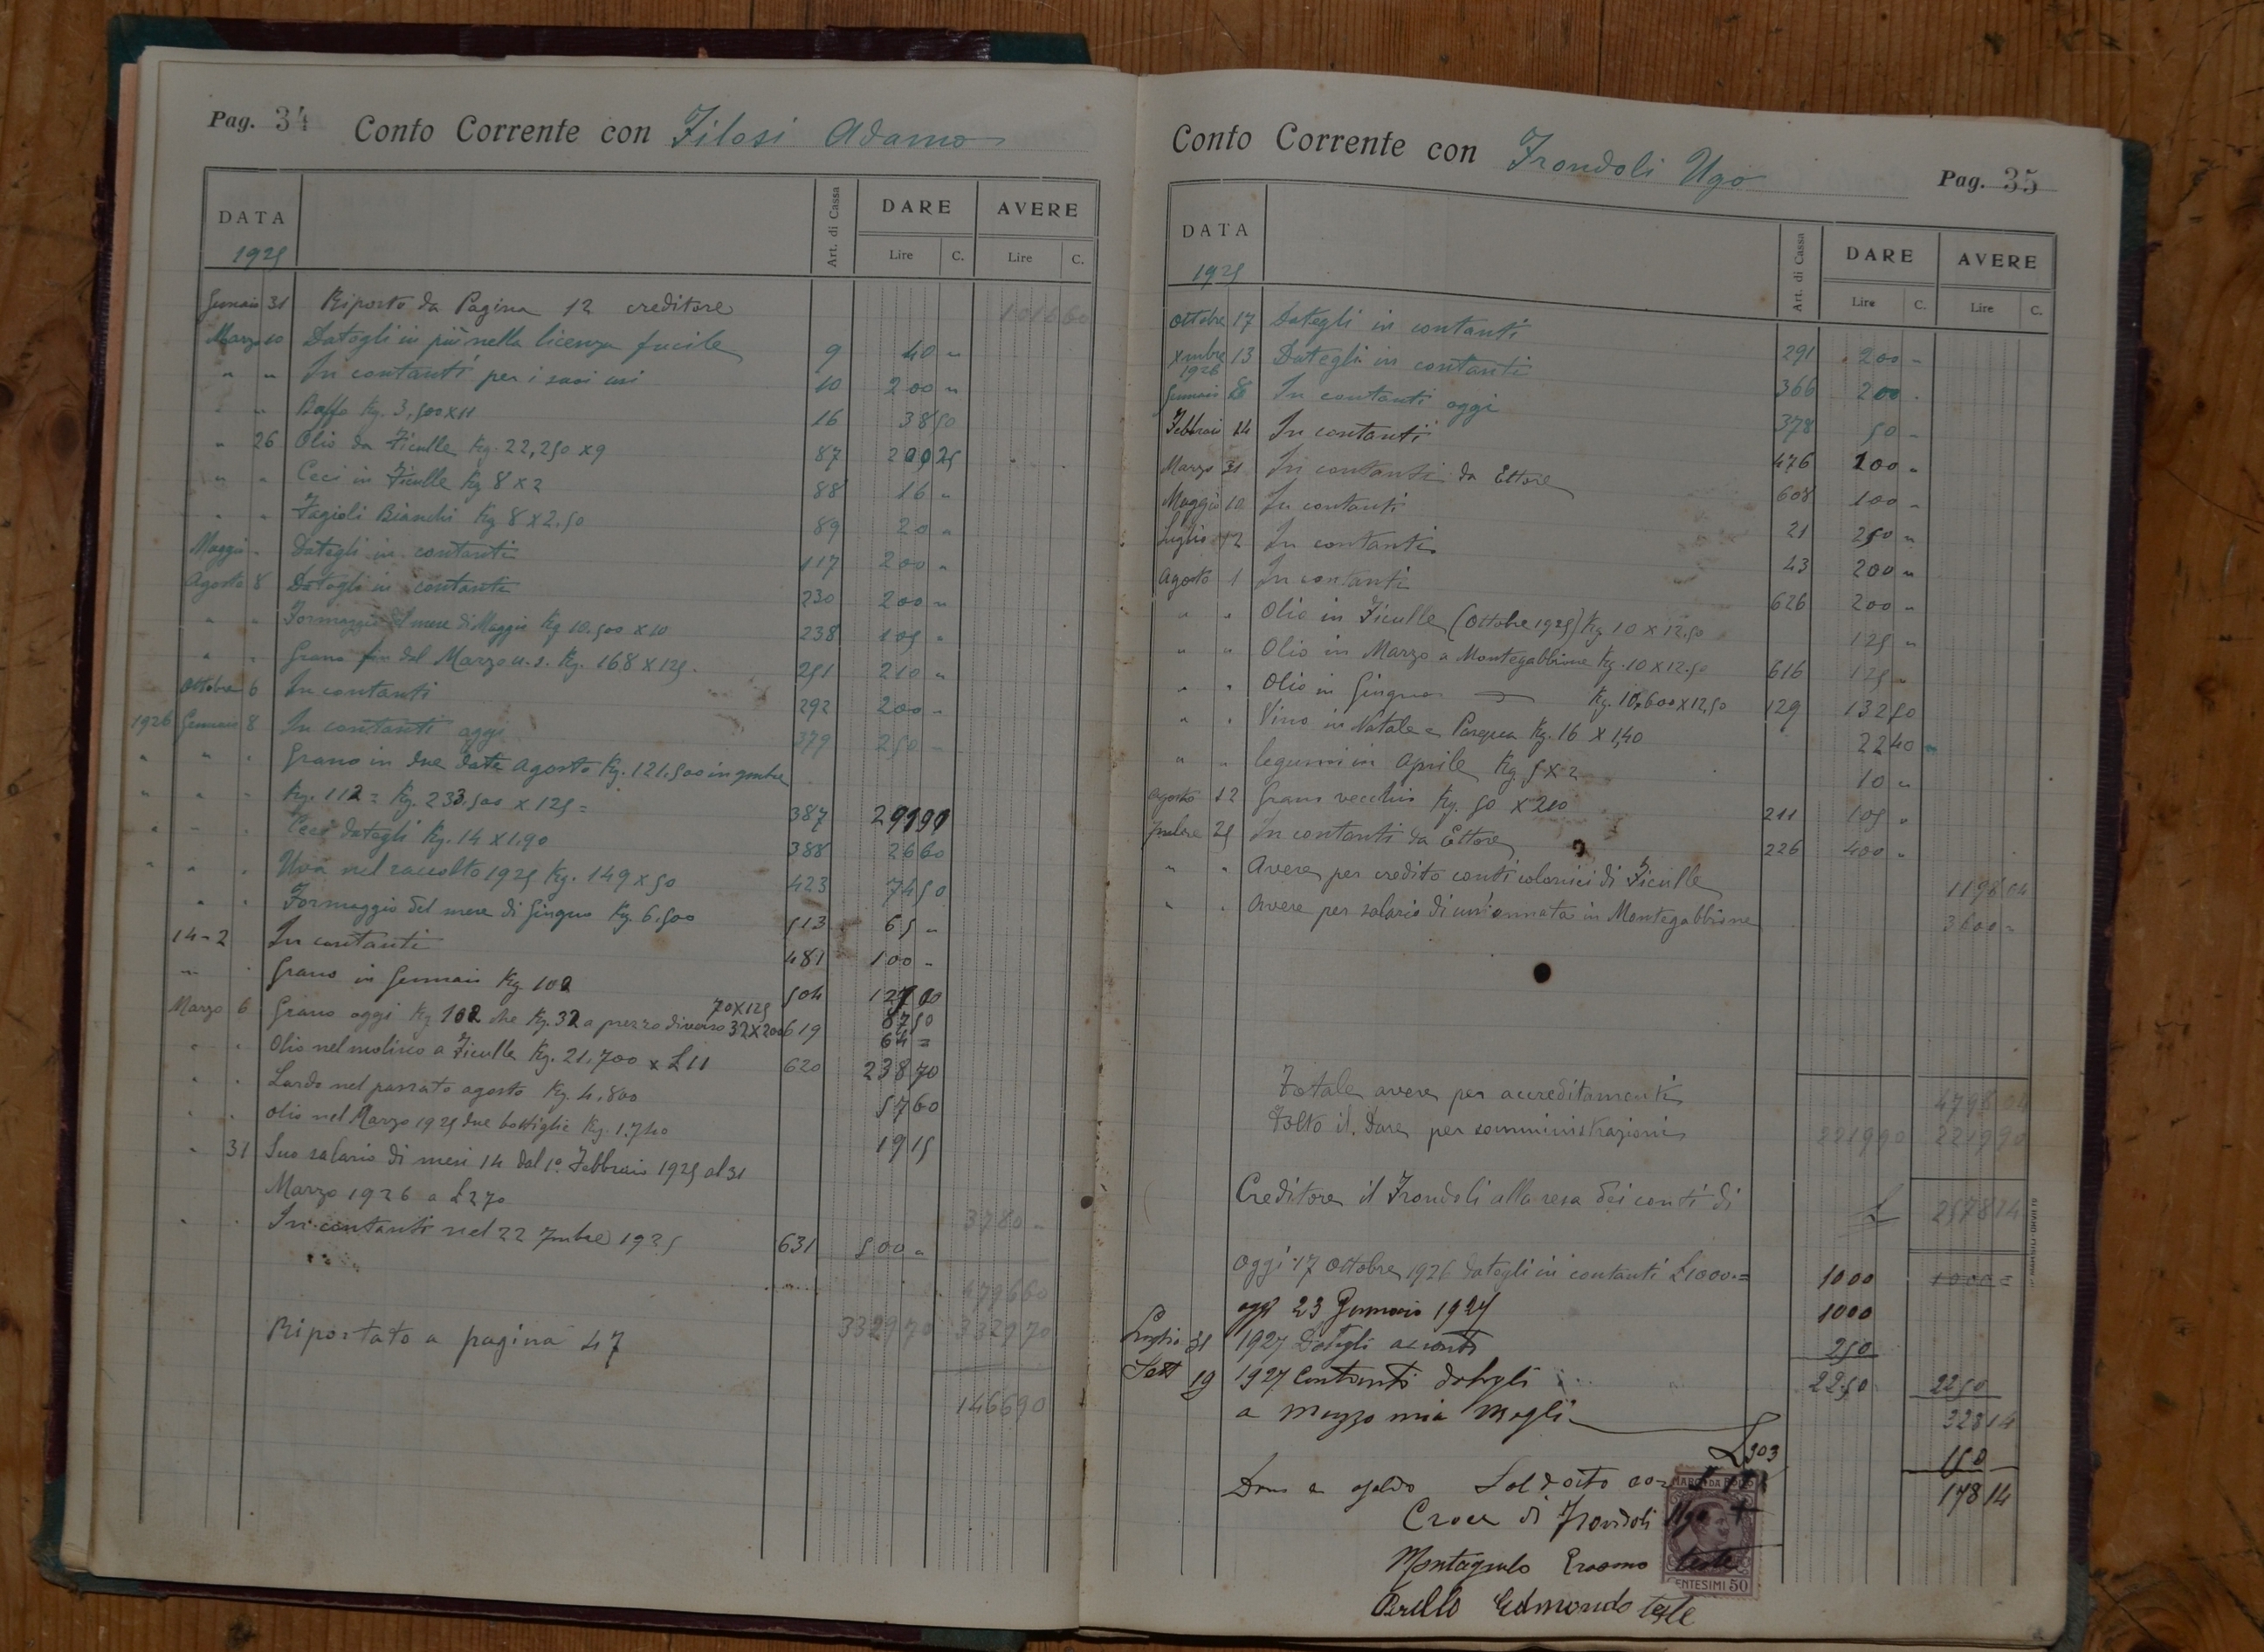 Pag. 34 Conto Corrente con Filosi Adamo
DATA Art. di Cassa DARE AVERE
1925 Lire C. Lire C.
Gennaio 31 Riporto da Pagina 12 creditore 1016 60
Marzo 10 Datogli in più nella licenza fucile 9 40 "
" " In contanti per i suoi usi 10 200 "
" " Baffa Kg. 3,500 x 11 16 38 50
" 26 Olio da Ficulle Kg. 22,250 x 9 87 200 25
" " Ceci in Ficulle Kg 8 x 2 88 16 "
" " Fagioli Bianchi Kg 8 x 2.50 89 20 "
Maggio " Datogli in contanti 117 200 "
Agosto 8 Datogli in contanti 230 200 "
" " Formaggio mese di Maggio Kg 10.500 x 10 238 105 "
" " Grano dal Marzo u.s. Kg. 168 x 125. 251 210 "
Ottobre 6 In contanti 292 200 "
1926 Gennaio 8 In contanti oggi 379 250 "
" " " Grano in due date Agosto Kg. 121.500 in
" " " Kg. 112 = Kg. 233.500 x 125 = 387
" " " Ceci datogli Kg. 14 x 1.90 388 26 60
" " " Uva nel raccolto 1925 Kg. 149 x 50 423 74 50
" " Formaggio del mese di Giugno Kg 6.500 513 65 "
14-2 In contanti 481 100 "
" " Grano in Gennaio Kg 102 504 127
70 x 125 87 50
Marzo 6 Grano oggi Kg 102 che Kg. 32 a prezzo diverso 32 x 200 619 64 =
" " Olio nel molino a Ficulle Kg. 21,700 x £ 11 620 238 70
" " Lardo nel passato agosto Kg. 4.800 57 60
" " Olio nel Marzo 1925 due bottiglie Kg. 1.740 19 15
" 31 Suo salario di mesi 14 dal 1º Febbraio 1925 al 31
Marzo 1926 a £ 270 3780 "
" " In contanti nel 22 7mbre 1925 631 500 "
4796 60
Riportato a pagina 47 3329 70 3329 70
1466 90
Conto Corrente con Frondoli Ugo Pag. 35
DATA Art. di Cassa DARE AVERE
1925 Lire C. Lire C.
Ottobre 17 Datogli in contanti 291 200 "
Xmbre 13 Datogli in contanti 366 200 "
1926
Gennaio 8 In contanti oggi 378 50 "
Febbraio 14 In contanti 476 100 "
Marzo 31 In contanti da Ettore 608 100 "
Maggio 10 In contanti 21 250 "
Luglio 12 In contanti 43 200 "
Agosto 1 In contanti 626 200 "
" " Olio in Ficulle (Ottobre 1925) Kg 10 x 12.50 125 "
" " Olio in Marzo a Montegabbione Kg. 10 x 12.50 616 125 "
" " Olio in Giugno Kg. 10,600 x 12,50 129 132 50
" " Vino in Natale e Pasqua Kg. 16 x 1,40 22 40
" " legumi in Aprile Kg. 5 x 2 10 "
Agosto 12 Grano vecchio Kg. 50 x 210 211 105 "
25 In contanti da Ettore 226 400 "
" " Avere per credito conti colonici di Ficulle 1198 04
" " Avere per salario di un'annata in Montegabbione 3600 "
Totale avere per accreditamenti 4798 04
Tolto il Dare per somministrazioni 2219 90 2219 90
Creditore il Frondoli alla resa dei conti di £ 2578 14
Oggi 17 Ottobre 1926 datogli in contanti £ 1000 = 1000 1000 =
oggi 23 Gennaio 1927 1000
Luglio 31 1927 Datogli acconto 250
Sett 19 1927 Contanti datogli 2250 2250
a mezzo mia moglie 328 14
£ 303 150
Saldato 178 14
MARCA DA BOLLO
Croce di Frondoli Ugo +
Montagnolo Erasmo teste
CENTESIMI 50
Edmondo teste